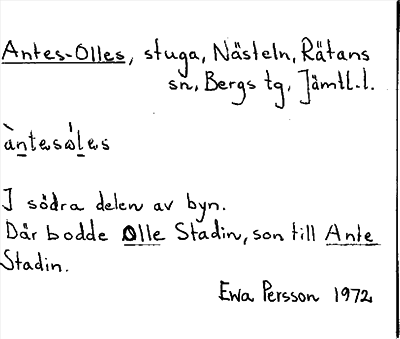 Antes-Olles, stuga, Nästeln, Rätans
sn, Bergs tg, Jämtl.l.
àntesὼles
I södra delen av byn.
Där bodde Olle Stadin, son till Ante
Stadin.
Ewa Persson 1972